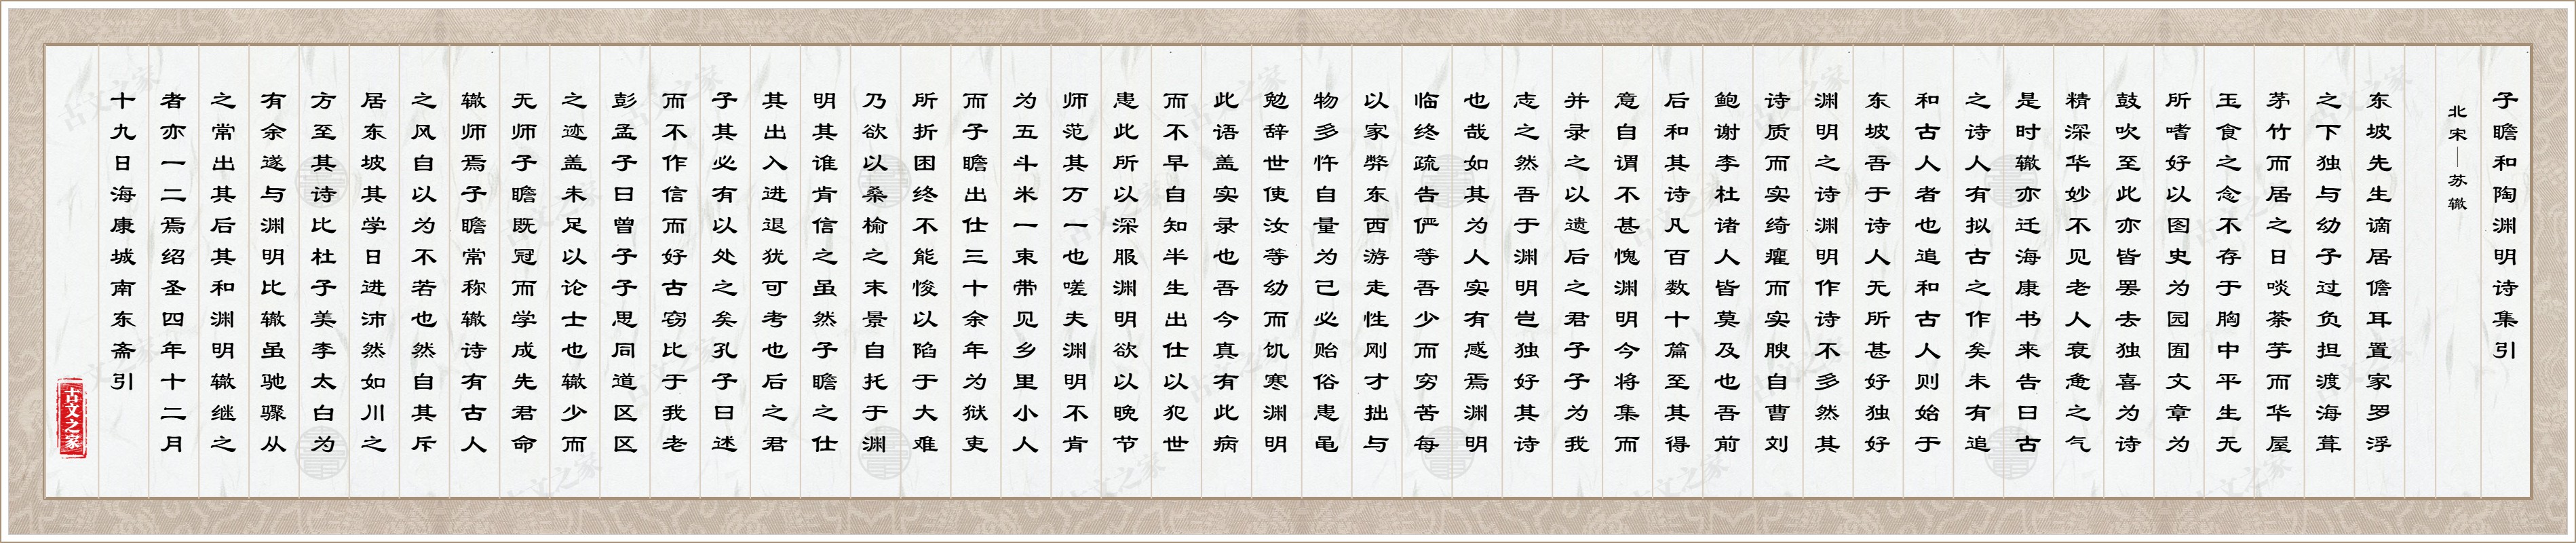 子瞻和陶渊明诗集引
北宋—苏辙
东坡先生谪居儋耳置家罗浮
之下独与幼子过负担渡海葺
茅竹而居之日啖荼芋而华屋
玉食之念不存于胸中平生无
所嗜好以图史为园囿文章为
鼓吹至此亦皆罢去独喜为诗
精深华妙不见老人衰惫之气
是时辙亦迁海康书来告曰古
之诗人有拟古之作矣未有追
和古人者也追和古人则始于
东坡吾于诗人无所甚好独好
渊明之诗渊明作诗不多然其
诗质而实绮癯而实腴自曹刘
鲍谢李杜诸人皆莫及也吾前
后和其诗凡百数十篇至其得
意自谓不甚愧渊明今将集而
并录之以遗后之君子子为我
志之然吾于渊明岂独好其诗
也哉如其为人实有感焉渊明
临终疏告俨等吾少而穷苦每
以家弊东西游走性刚才拙与
物多忤自量为己必贻俗患黾
勉辞世使汝等幼而饥寒渊明
此语盖实录也吾今真有此病
而不早自知半生出仕以犯世
患此所以深服渊明欲以晚节
师范其万一也嗟夫渊明不肯
为五斗米一束带见乡里小人
而子瞻出仕三十余年为狱吏
所折困终不能悛以陷于大难
乃欲以桑榆之末景自托于渊
明其谁肯信之虽然子瞻之仕
其出入进退犹可考也后之君
子其必有以处之矣孔子曰述
而不作信而好古窃比于我老
彭孟子曰曾子子思同道区区
之迹盖未足以论士也辙少而
无师子瞻既冠而学成先君命
辙师焉子瞻常称辙诗有古人
之风自以为不若也然自其斥
居东坡其学日进沛然如川之
方至其诗比杜子美李太白为
有余遂与渊明比辙虽驰骤从
之常出其后其和渊明辙继之
者亦一二焉绍圣四年十二月
十九日海康城南东斋引
古文之家